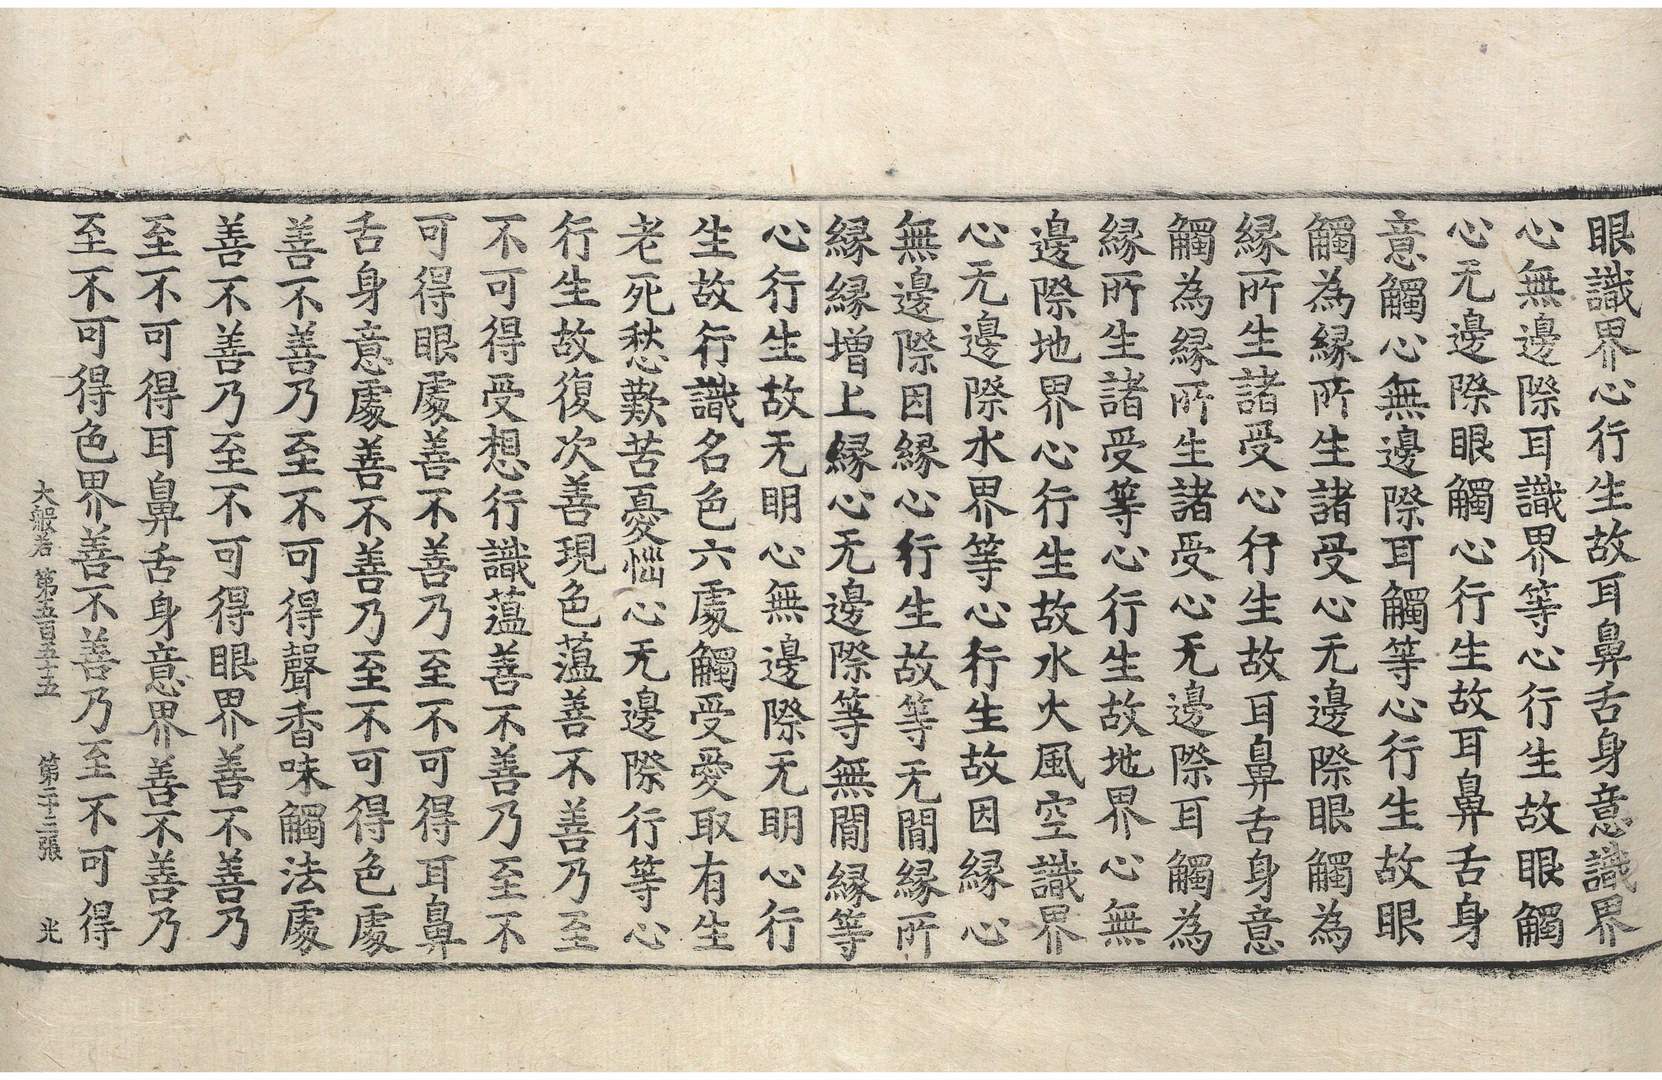 眼識界心行生故耳鼻舌身意識界
心無邊際耳識界等心行生故眼觸
心无邊際眼觸心行生故耳鼻舌身
意觸心無邊際耳觸等心行生故眼
觸為緣所生諸受心无邊際眼觸為
緣所生諸受心行生故耳鼻舌身意
觸為緣所生諸受心无邊際耳觸為
緣所生諸受等心行生故地界心無
邊際地界心行生故水火風空識界
心无邊際水界等心行生故因緣心
無邊際因緣心行生故等无閒緣所
緣緣增上緣心无邊際等無閒緣等
心行生故无明心無邊際无明心行
生故行識名色六處觸受愛取有生
老死愁歎苦憂惱心无邊際行等心
行生故復次善現色薀善不善乃至
不可得受想行識薀善不善乃至不
可得眼處善不善乃至不可得耳鼻
舌身意處善不善乃至不可得色處
善不善乃至不可得聲香味觸法處
善不善乃至不可得眼界善不善乃
至不可得耳鼻舌身意界善不善乃
至不可得色界善不善乃至不可得
大般若 第五百五十五 第二十三張 光